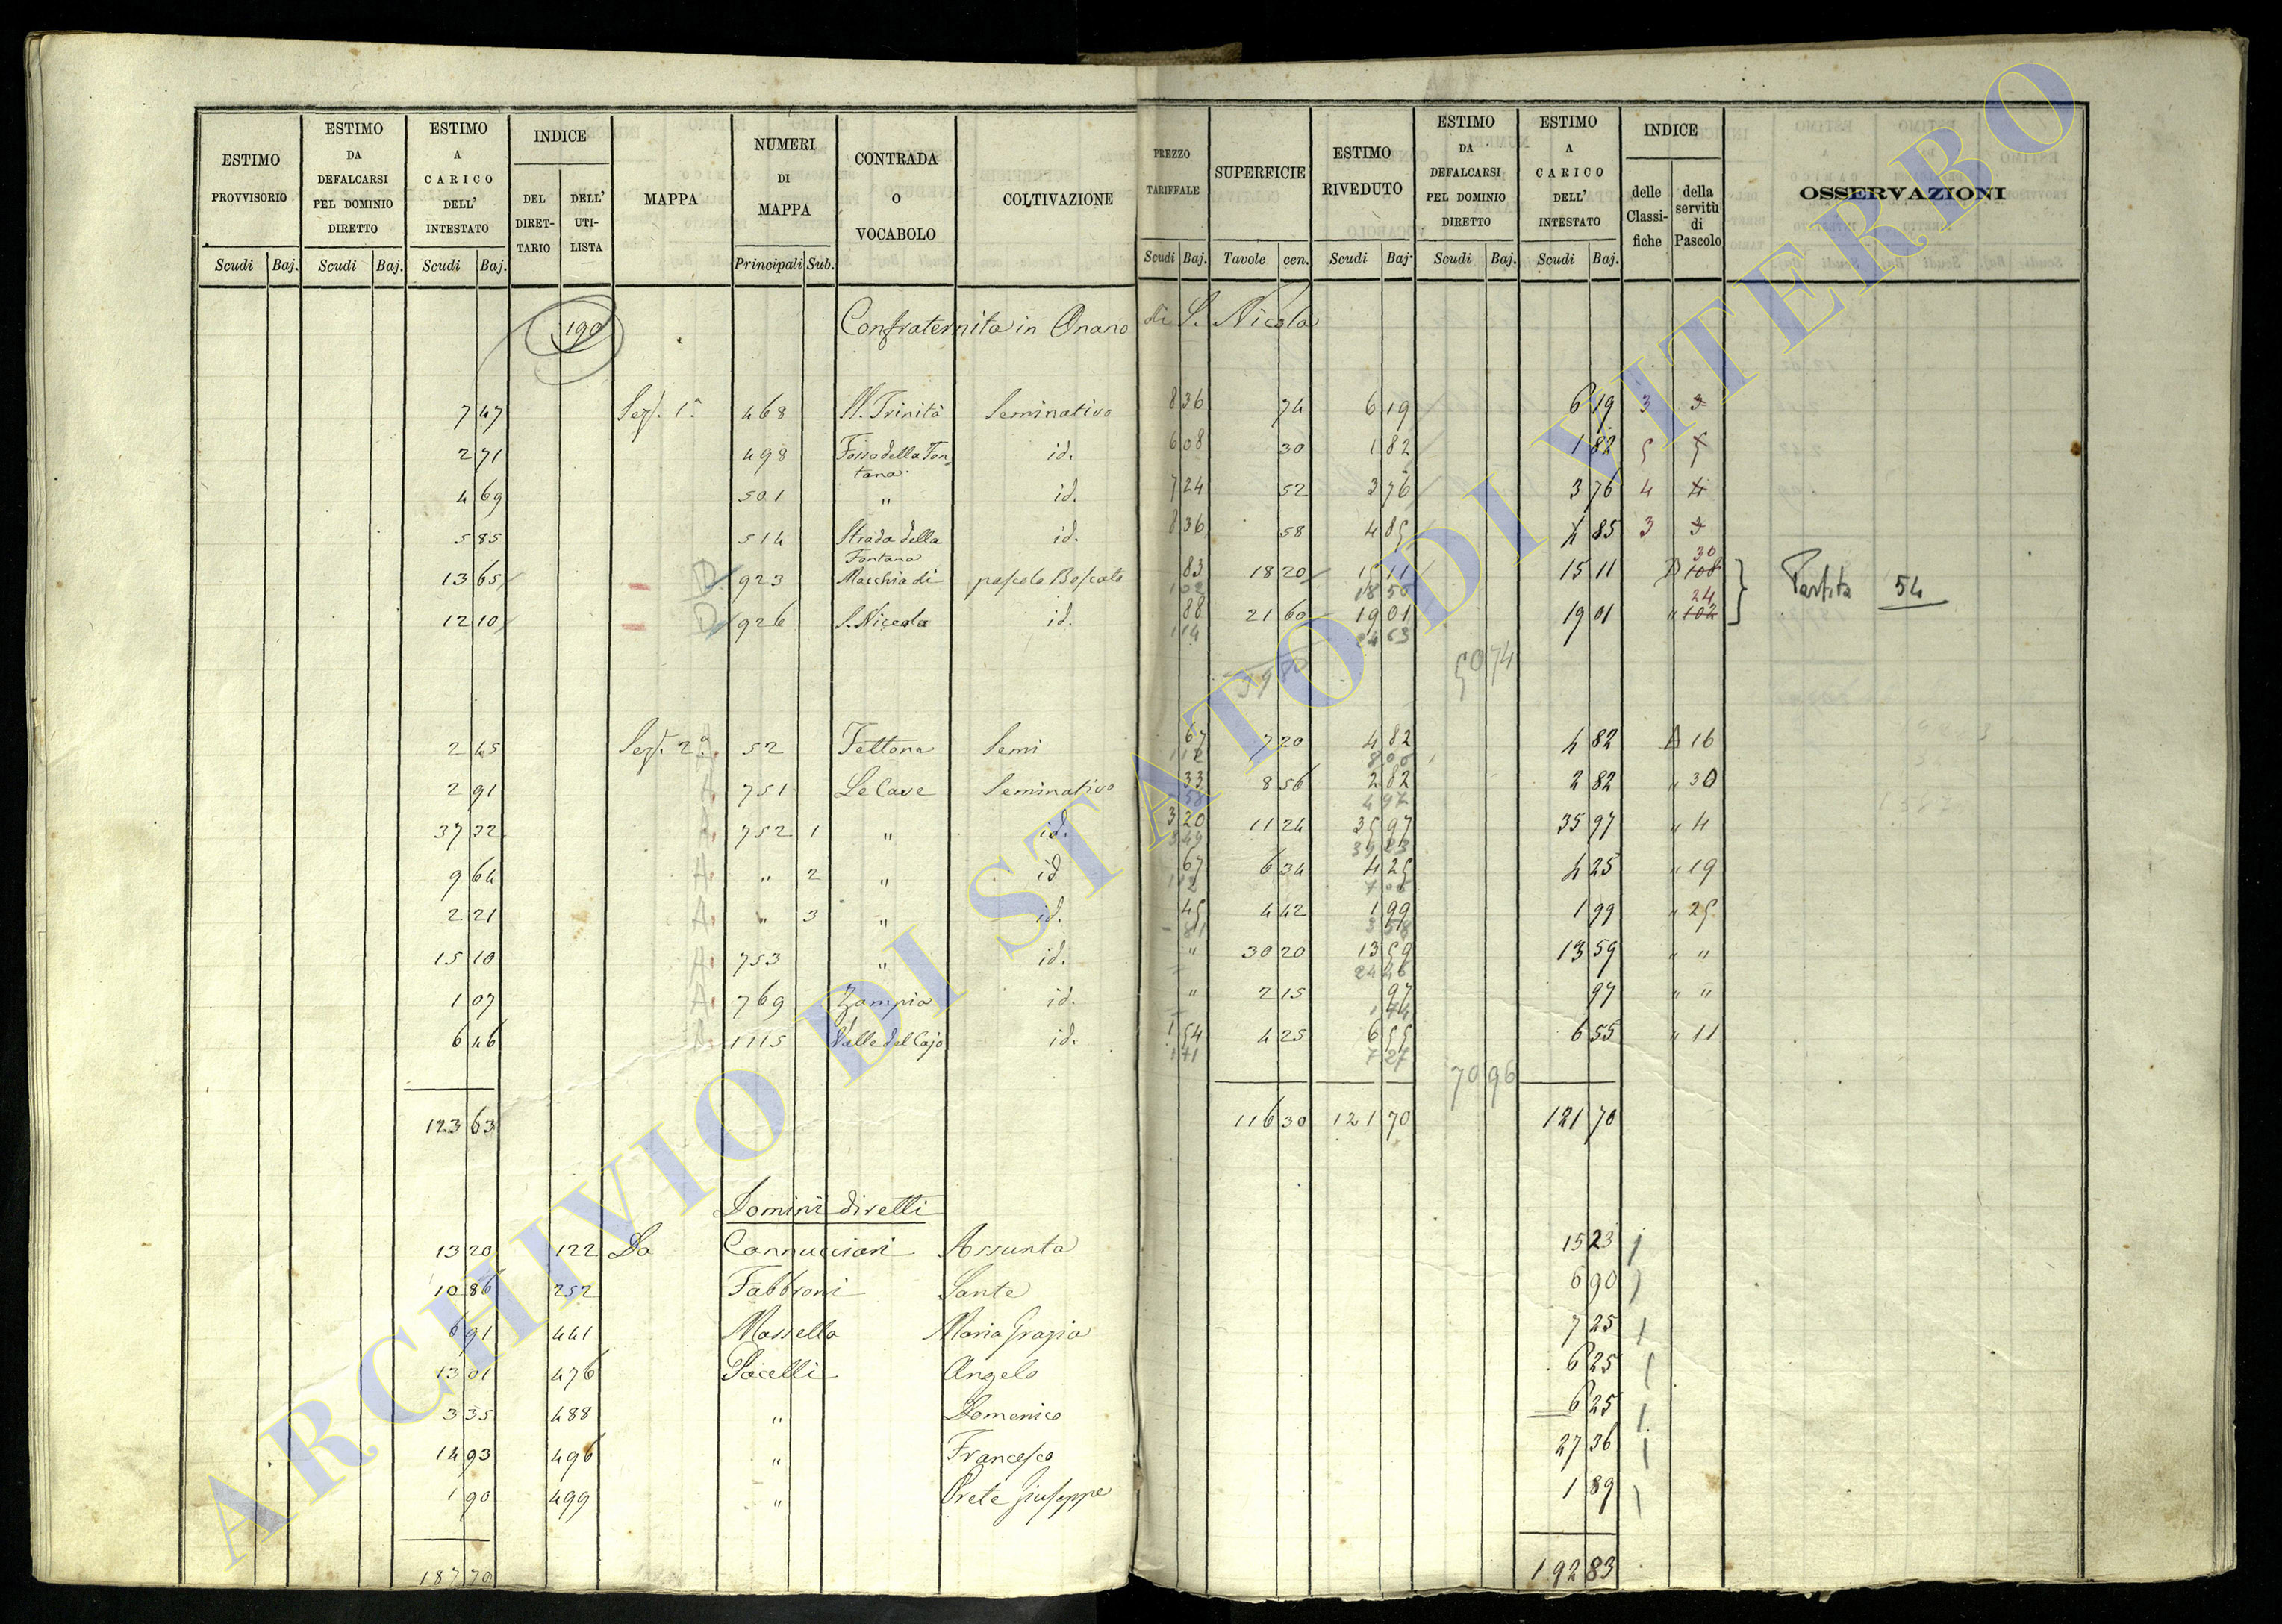 ESTIMO PROVVISORIO | ESTIMO DA DEFALCARSI PEL DOMINIO DIRETTO | ESTIMO A CARICO DELL' INTESTATO | INDICE DEL DIRETTARIO | DELL' UTILISTA | MAPPA | NUMERI DI MAPPA | CONTRADA O VOCABOLO | COLTIVAZIONE | PREZZO TARIFFALE | SUPERFICIE | ESTIMO RIVEDUTO | ESTIMO DA DEFALCARSI PEL DOMINIO DIRETTO | ESTIMO A CARICO DELL' INTESTATO | INDICE delle Classifiche | della servitù di Pascolo | OSSERVAZIONI
Scudi Baj. Scudi Baj. Scudi Baj. Principali Sub. Scudi Baj. Tavole cen. Scudi Baj. Scudi Baj. Scudi Baj.
190 Confraternita in Onano di S. Nicola
7 47 Sez. 1ª 468 SS. Trinità Seminativo 8 36 74 6 19 6 19 3 3
2 71 498 Fossa della Fontana id. 6 08 30 1 82 1 82 5 5
4 69 501 " id. 7 24 52 3 76 3 76 4 4
5 85 514 Strada della Fontana id. 8 36 58 4 85 4 85 3 3
13 65 D 923 Macchia di pascolo Boscato 83 18 20 15 11 15 11 D 108 30 Partita 54
102 18 56
12 10 D 926 S. Nicola id. 88 21 60 19 01 19 01 " 102 24
114 24 63
39 80 50 74
2 45 Sez. 2ª A. 52 Fettona Semi 67 7 20 4 82 4 82 A 16
112 8 06
2 91 A. 751 Le Cave Seminativo 33 8 56 2 82 2 82 " 30
58 4 97
37 22 A. 752 1 " id. 3 20 11 24 35 97 35 97 " 4
3 49 39 23
9 64 A. " 2 " id 67 6 34 4 25 4 25 " 19
112
2 21 A. " 3 " id. 45 4 42 1 99 1 99 " 25
81 3 58
15 10 A. 753 " id. " 30 20 13 59 13 59 " "
24 46
1 07 A. 769 Zampia id. " 2 15 97 97 " "
1 74
6 46 A. 1115 Valle del Cajo id. 1 54 4 25 6 55 6 55 " 11
1 71 7 27
70 96
123 63 116 30 121 70 121 70
Dominii diretti
13 20 122 Da Cannucciari Assunta 15 23
10 86 252 Fabbroni Sante 6 90
6 91 441 Massella Maria Grazia 7 25
13 01 476 Pacelli Angelo 6 25
3 35 488 " Domenico 6 25
14 93 496 " Francesco 27 36
1 90 499 " Prete Giuseppe 1 89
187 70 192 83
ARCHIVIO DI STATO DI VITERBO